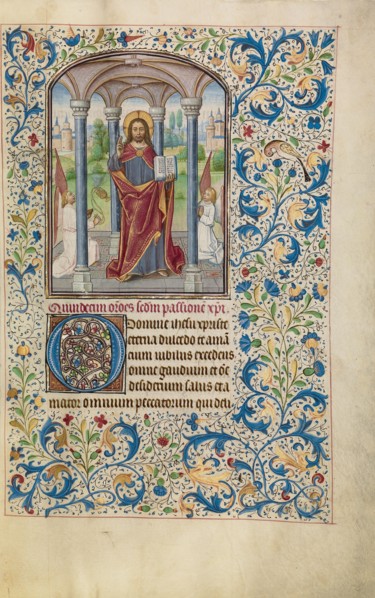 Quindecim orōes secdm passione xpi.
O Domine ihesu xpriste
eterna dulcedo et amā
cium iubilus excedens
omne gaudium et ōe
desiderium salus et a
mator omnium peccatorum qui deli